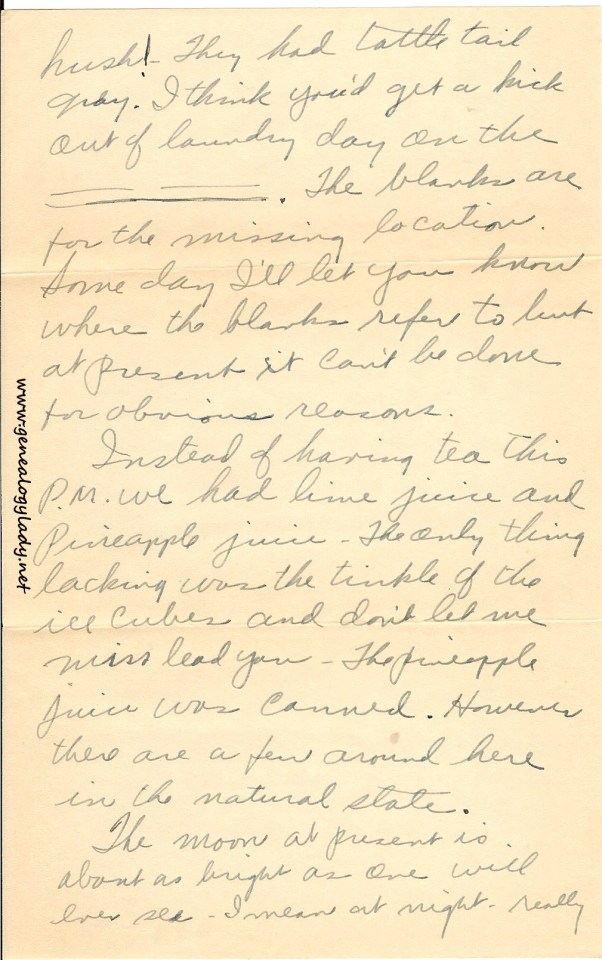 hush! - They had tattle tail
gray. I think you'd get a kick
out of laundry day on the
___ ___. The blanks are
for the missing location.
Some day I'll let you know
where the blanks refer to but
at present it can't be done
for obvious reasons.
Instead of having tea this
P.M. we had lime juice and
Pineapple juice - The only thing
lacking was the tinkle of the
ice cubes and don't let me
miss lead you - The pineapple
juice was canned. However
there are a few around here
in the natural state.
The moon at present is
about as bright as one will
ever see - I mean at night - really
www.genealogylady.net